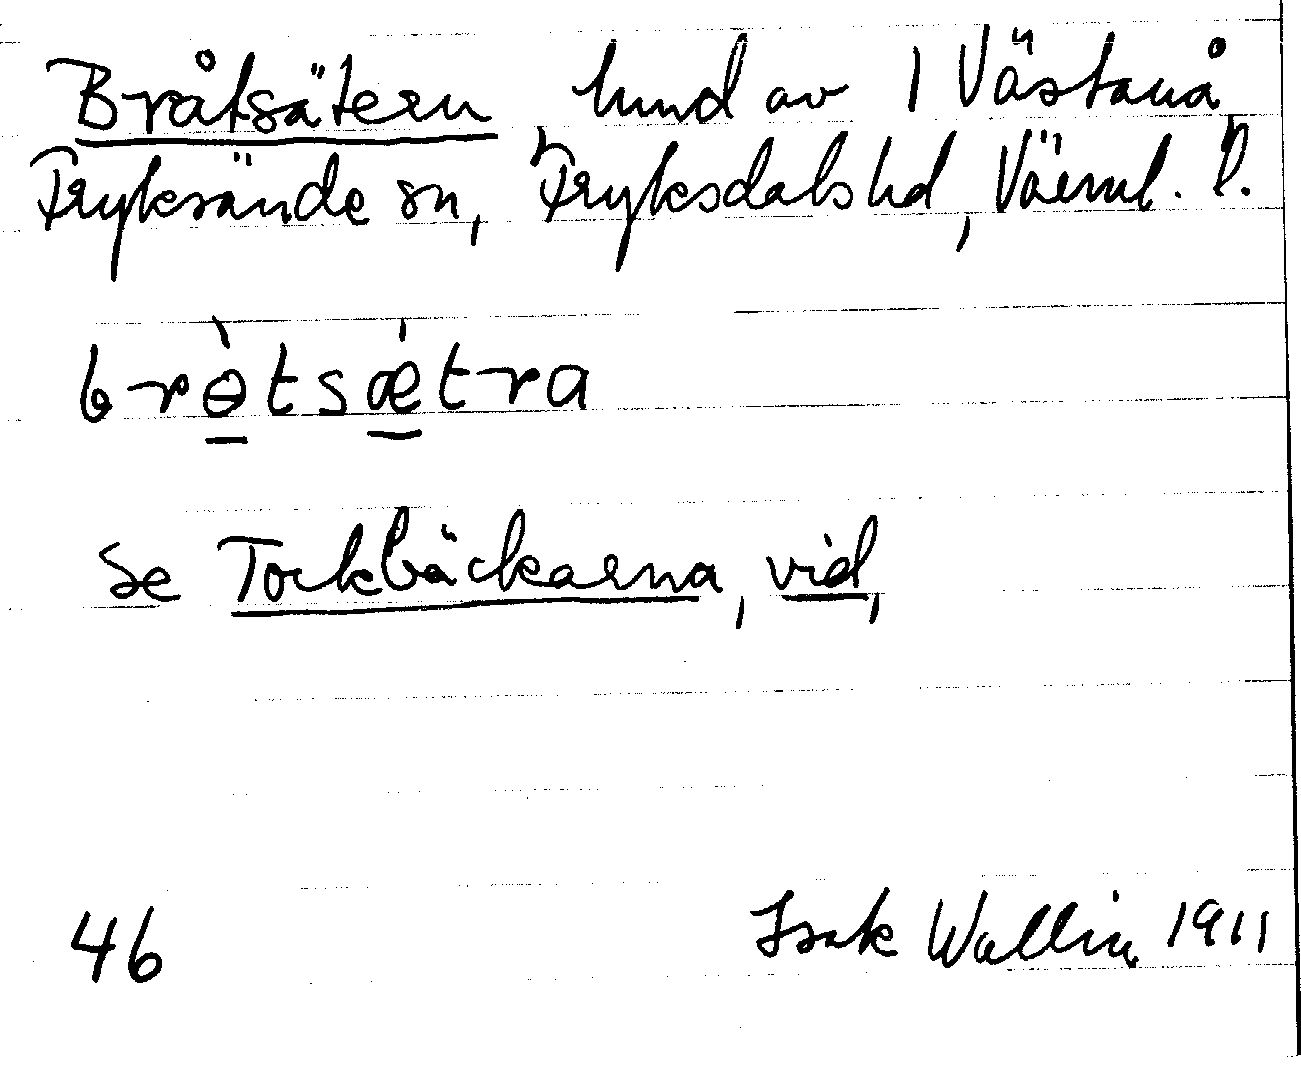 Bråtsätern hmd av 1 Västanå
Fryksände sn, Fryksdals hd, Värml. l.
brɵ̀tsǽtra
se Tockbäckarna, vid,
46
Isak Wallin 1911